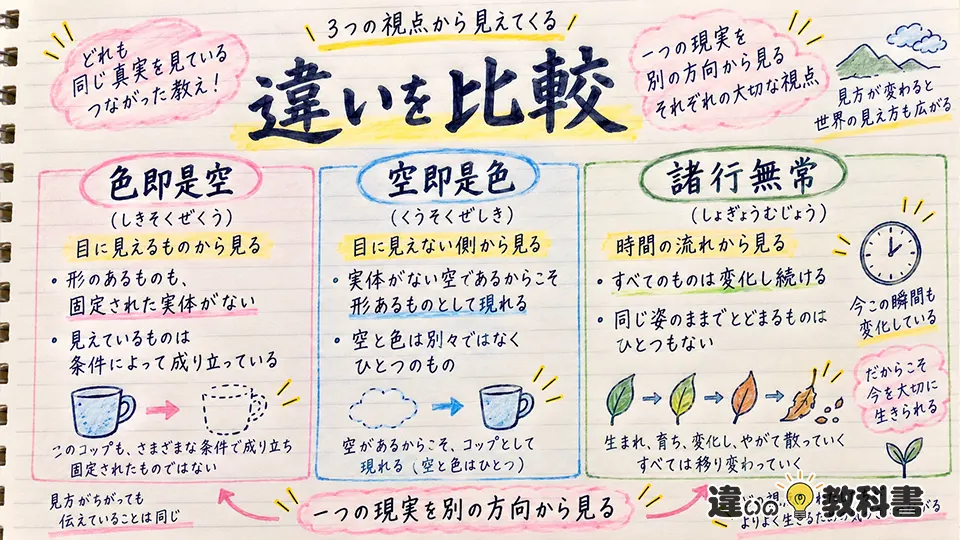 3つの視点から見えてくる
違いを比較
どれも
同じ真実を見ている
つながった教え！
一つの現実を
別の方向から見る
それぞれの大切な視点
見方が変わると
世界の見え方も広がる
色即是空
(しきそくぜくう)
目に見えるものから見る
・形のあるものも、
固定された実体がない
・見えているものは
条件によって成り立っている
このコップも、さまざまな条件で成り立ち
固定されたものではない
空即是色
(くうそくぜしき)
目に見えない側から見る
・実体がない空であるからこそ
形あるものとして現れる
・空と色は別々ではなく
ひとつのもの
空があるからこそ、コップとして
現れる（空と色はひとつ）
諸行無常
(しょぎょうむじょう)
時間の流れから見る
・すべてのものは変化し続ける
・同じ姿のままでとどまるものは
ひとつもない
生まれ、育ち、変化し、やがて散っていく
すべては移り変わっていく
今この瞬間も
変化している
だからこそ
今を大切に
生きられる
見方がちがっても
伝えていることは同じ
一つの現実を別の方向から見る
違いの教科書